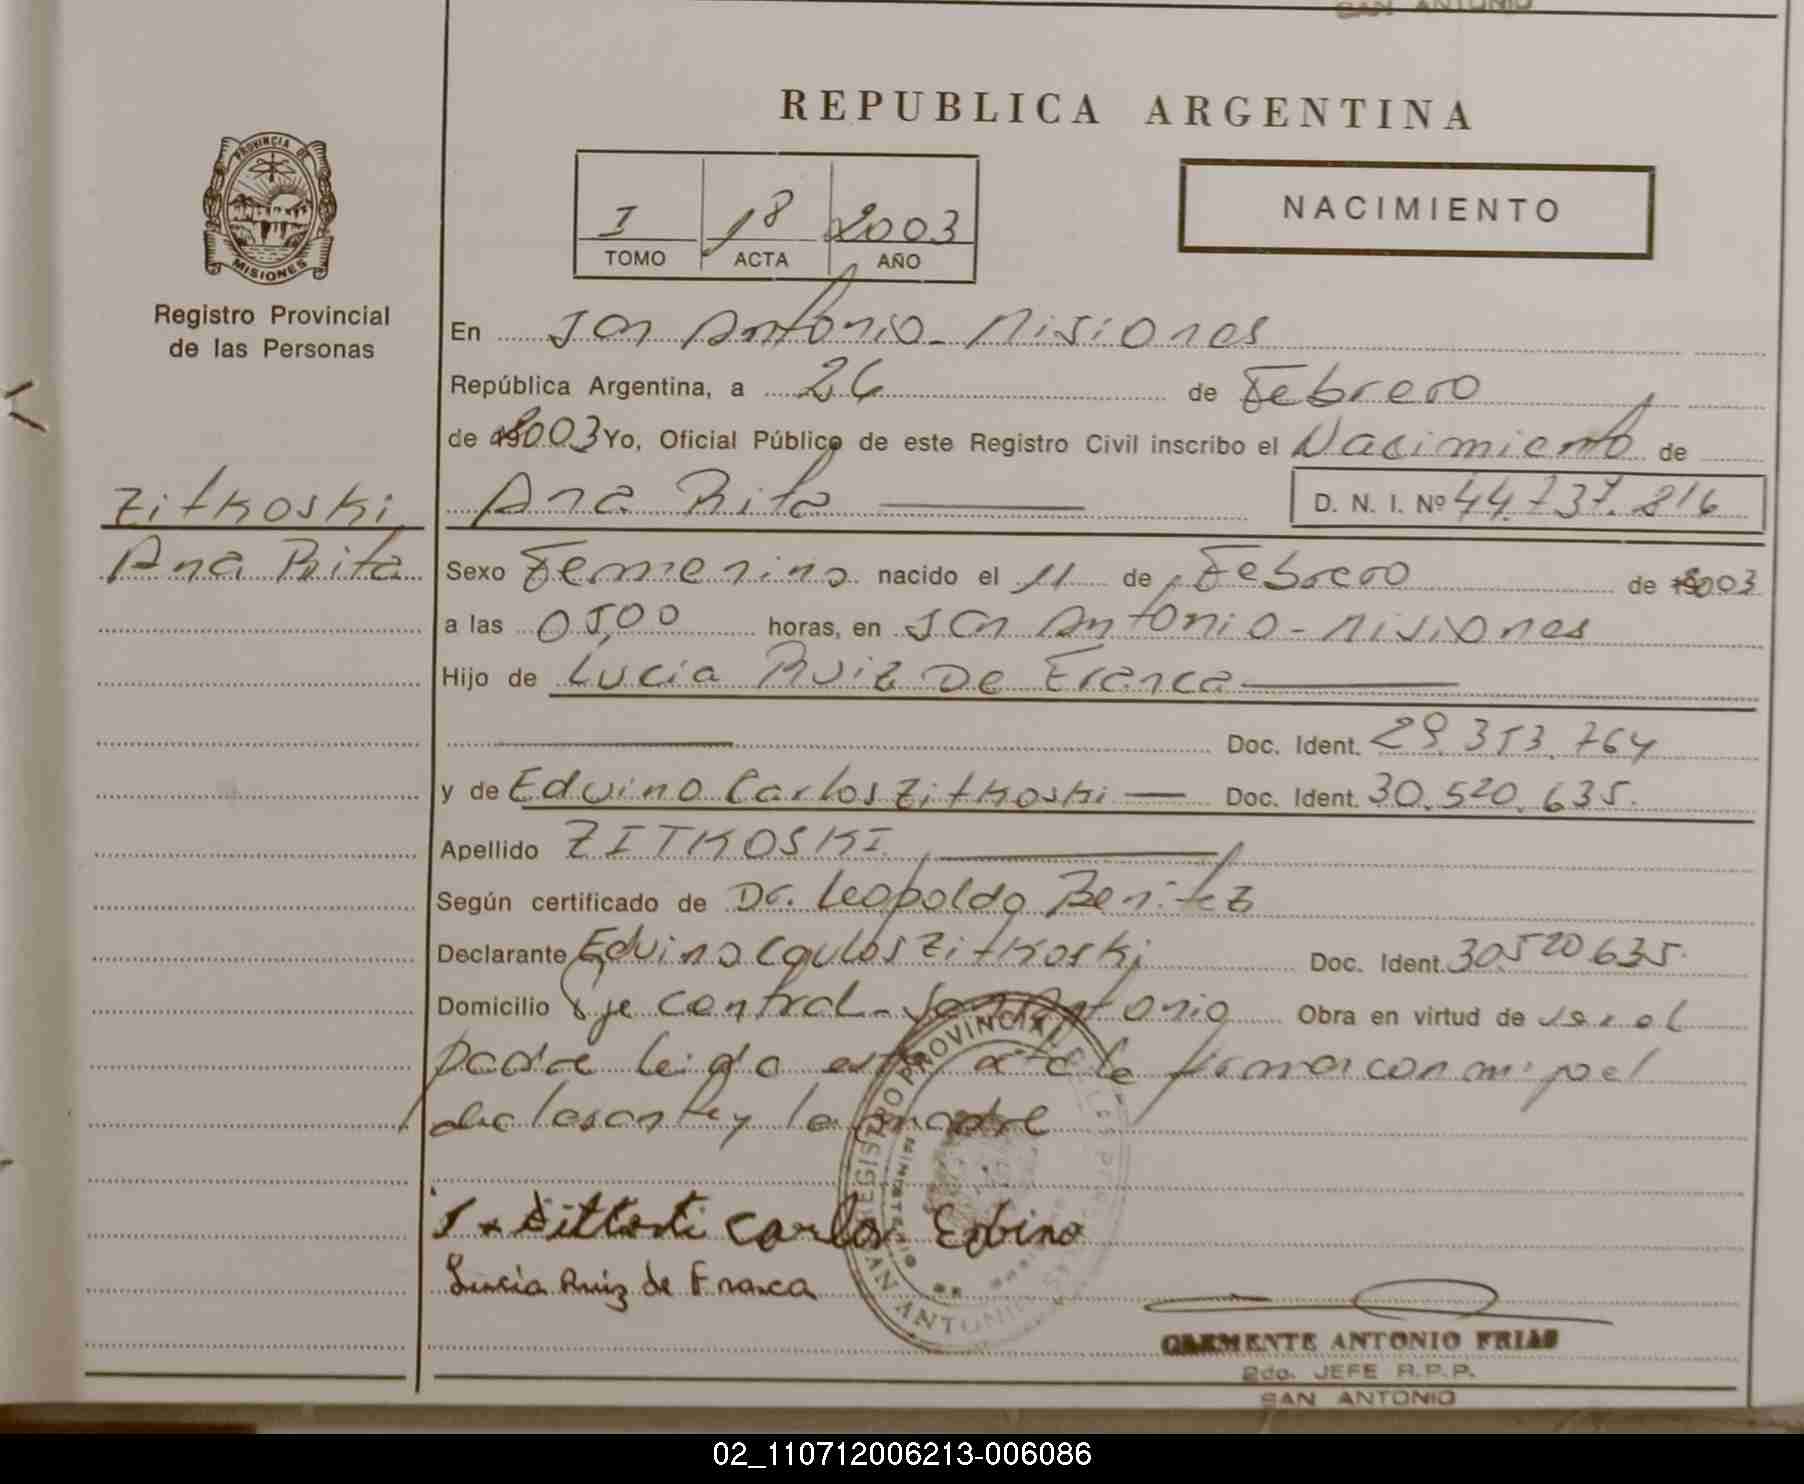 SAN ANTONIO
REPUBLICA ARGENTINA
PROVINCIA DE
MISIONES
Registro Provincial
de las Personas
I 18 2003
TOMO ACTA AÑO
NACIMIENTO
En San Antonio - Misiones
República Argentina, a 26 de Febrero
de 2003 Yo, Oficial Público de este Registro Civil inscribo el Nacimiento de
Zitkoski
Ana Rita
Ana Rita D. N. I. Nº 44.737.816
Sexo Femenino nacido el 11 de Febrero de 2003
a las 05,00 horas, en San Antonio - Misiones
Hijo de Lucia Ruiz De Franca
Doc. Ident. 29.353.764
y de Edvino Carlos Zitkoski Doc. Ident. 30.520.635.
Apellido ZITKOSKI
Según certificado de Dr. Leopoldo Benitez
Declarante Edvino Carlos Zitkoski Doc. Ident. 30.520.635.
Domicilio Eje Central - San Antonio Obra en virtud de ser el
padre leida esta acta la firman con migo el
declarante y la madre
REGISTRO PROVINCIAL DE LAS
SAN ANTONIO
Carlos Edvino
Lucia Ruiz de Franca
CLEMENTE ANTONIO FRIAS
2do. JEFE R.P.P.
SAN ANTONIO
02_110712006213-006086